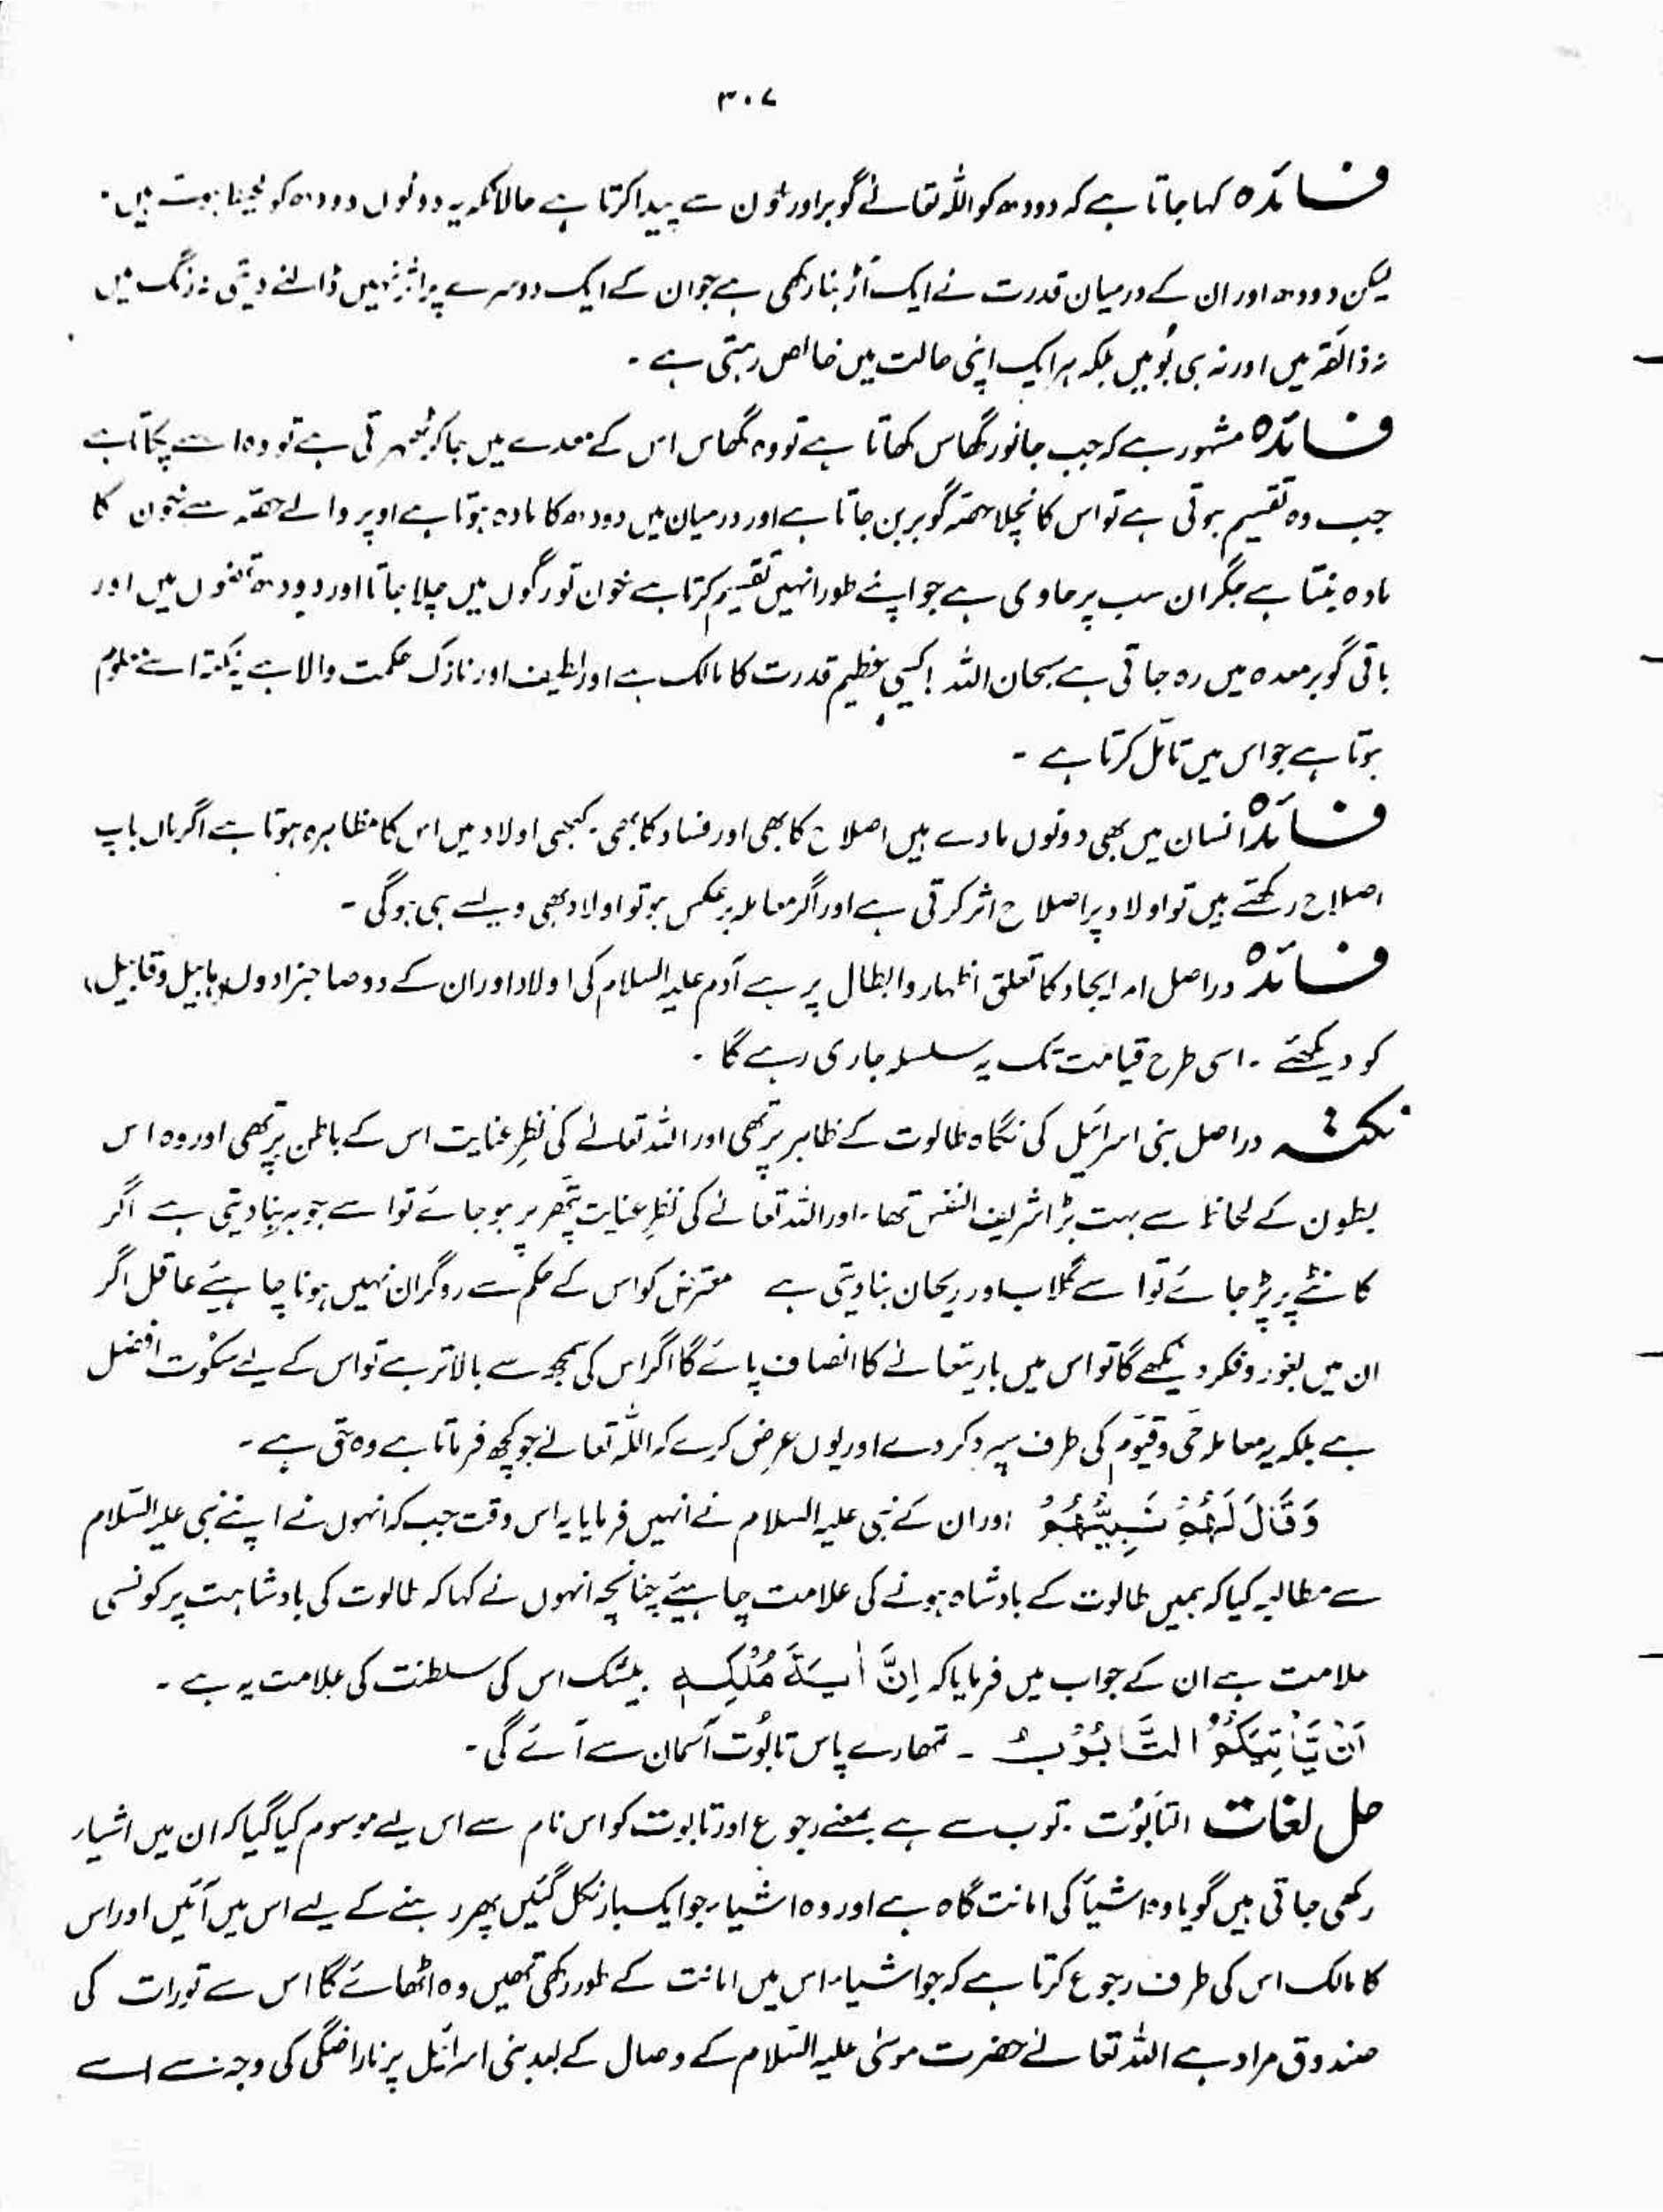 ۳۰۷
فائدہ کہا جاتا ہے کہ دودھ کو اللہ تعالےٰ گوبر اور خون سے پیدا کرتا ہے حالانکہ یہ دونوں دودھ کو ہوتے ہیں۔
لیکن دودھ اور ان کے درمیان قدرت نے ایک آڑ بنا رکھی ہے جو ان کے ایک دوسرے پر اثر نہیں ڈالنے دیتی نہ رنگ میں
نہ ذائقہ میں اور نہ ہی بُو میں بلکہ ہر ایک اپنی حالت میں خالص رہتی ہے ۔
فائدہ مشہور ہے کہ جب جانور گھاس کھاتا ہے تو وہ گھاس اس کے معدے میں جا کر ٹھہرتی ہے تو وہ اسے پکاتا ہے
جب وہ تقسیم ہوتی ہے تو اس کا نچلا حصّہ گوبر بن جاتا ہے اور درمیان میں دودھ کا مادہ ہوتا ہے اوپر والے حصّہ سے خون کا
مادہ بنتا ہے جگر ان سب پر حاوی ہے جو اپنے طور انہیں تقسیم کرتا ہے خون تو رگوں میں چلا جاتا اور دودھ تھنوں میں اور
باقی گوبر معدہ میں رہ جاتی ہے سبحان اللہ ! کیسی عظیم قدرت کا مالک ہے اور لطیف اور نازک حکمت والا ہے یہ نکتہ اسے معلوم
ہوتا ہے جو اس میں تامّل کرتا ہے ۔
فائدہ انسان میں بھی دونوں مادے ہیں اصلاح کا بھی اور فساد کا بھی۔ کبھی اولاد میں اس کا مظاہرہ ہوتا ہے اگر ماں باپ
اصلاح رکھتے ہیں تو اولاد پر اصلاح اثر کرتی ہے اور اگر معاملہ برعکس ہو تو اولاد بھی ویسے ہی ہوگی ۔
فائدہ دراصل امر ایجاد کا تعلق اظہار و ابطال پر ہے آدم علیہ السلام کی اولاد اور ان کے دو صاحبزادوں (ہابیل و قابیل)
کو دیکھئے ۔ اسی طرح قیامت تک یہ سلسلہ جاری رہے گا ۔
نکتہ دراصل بنی اسرائیل کی نگاہ طالوت کے ظاہر پر تھی اور اللہ تعالےٰ کی نظرِ عنایت اس کے باطن پر تھی اور وہ اس
بطون کے لحاظ سے بہت بڑا شریف النفس تھا ۔ اور اللہ تعالےٰ کی نظرِ عنایت پتّھر پر ہو جائے تو اسے جوہر بنا دیتی ہے اگر
کانٹے پر پڑ جائے تو اسے گلاب اور ریحان بنا دیتی ہے معترض کو اس کے حکم سے روگران نہیں ہونا چاہیئے عاقل اگر
ان میں بغور و فکر دیکھے گا تو اس میں باریتعالےٰ کا انصاف پائے گا اگر اس کی سمجھ سے بالاتر ہے تو اس کے لیے سکوت افضل
ہے بلکہ یہ معاملہ حَی و قیّوم کی طرف سپرد کر دے اور یوں عرض کرے کہ اللہ تعالےٰ جو کچھ فرماتا ہے وہ حق ہے ۔
وَقَالَ لَهُمْ نَبِيُّهُمْ اور ان کے نبی علیہ السلام نے انہیں فرمایا یہ اس وقت جب کہ انہوں نے اپنے نبی علیہ السّلام
سے مطالبہ کیا کہ ہمیں طالوت کے بادشاہ ہونے کی علامت چاہیئے چنانچہ انہوں نے کہا کہ طالوت کی بادشاہت پر کونسی
علامت ہے ان کے جواب میں فرمایا کہ اِنَّ اٰيَةَ مُلْكِهٖ بیشک اس کی سلطنت کی علامت یہ ہے ۔
اَنْ يَّاْتِيَكُمُ التَّابُوْتُ ۔ تمھارے پاس تابُوت آسمان سے آئے گی ۔
حل لغات التابُوت ۔ توب سے ہے بمعنے رجوع اور تابوت کو اس نام سے اس لیے موسوم کیا گیا کہ ان میں اشیاء
رکھی جاتی ہیں گویا وہ اشیاء کی امانت گاہ ہے اور وہ اشیاء جو ایک بار نکل گئیں پھر رہنے کے لیے اس میں آئیں اور اس
کا مالک اس کی طرف رجوع کرتا ہے کہ جو اشیاء اس میں امانت کے طور رکھی تھیں وہ اٹھائے گا اس سے تورات کی
صندوق مراد ہے اللہ تعالےٰ نے حضرت موسیٰ علیہ السّلام کے وصال کے بعد بنی اسرائیل پر ناراضگی کی وجہ سے اسے